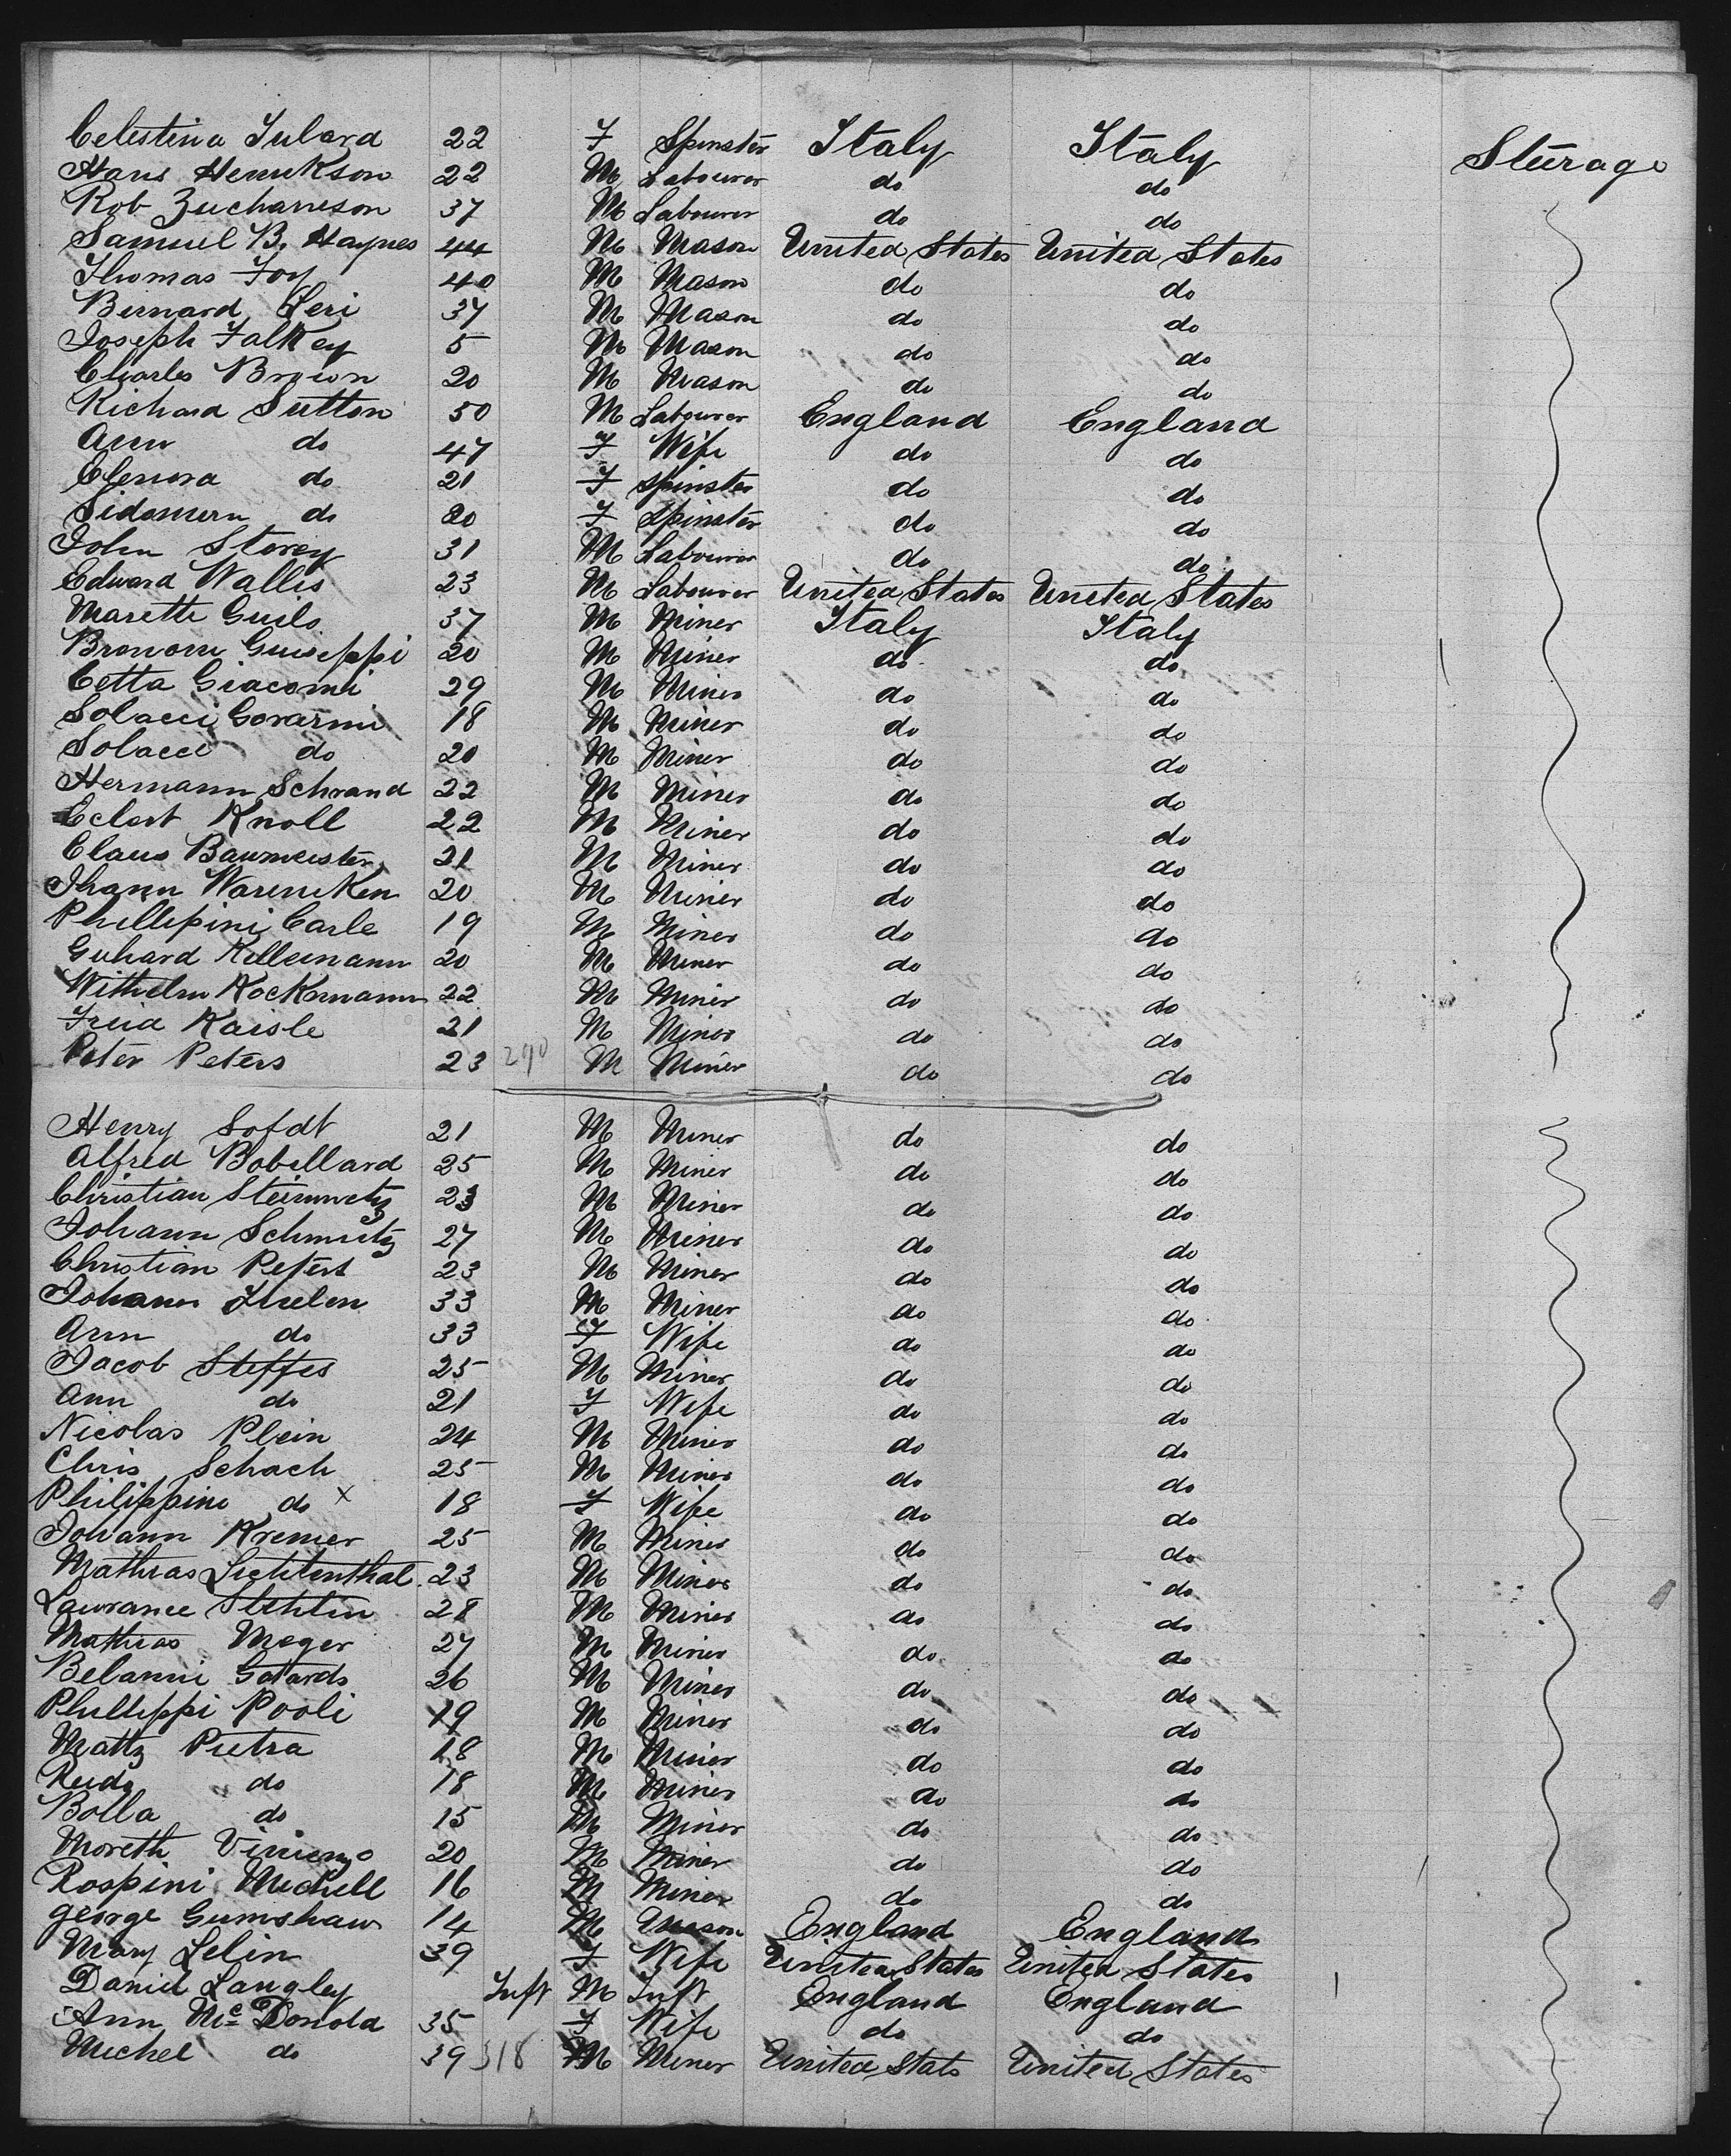 Celestina Jubard 22 F Spinster Italy Italy Steerage
Hans Henrikson 22 M Labourer do do
Rob Zucharieson 37 M Labourer do do
Samuel B. Haynes 44 M Mason United States United States
Thomas Foy 40 M Mason do do
Bernard Leri 37 M Mason do do
Joseph Falkey 5 M Mason do do
Charles Brown 20 M Mason do do
Richard Sutton 50 M Labourer England England
Ann do 47 F Wife do do
Elenora do 21 F Spinster do do
Sidomern do 20 F Spinster do do
John Storey 31 M Labourer do do
Edward Wallis 23 M Labourer United States United States
Marette Guilo 37 M Miner Italy Italy
Bronom Guiseppi 20 M Miner do do
Cetta Giacomi 29 M Miner do do
Solacci Govarmi 18 M Miner do do
Solacci do 20 M Miner do do
Hermann Schrand 22 M Miner do do
Eclert Knoll 22 M Miner do do
Claus Baumeister 21 M Miner do do
Jhann Warencken 20 M Miner do do
Phillipini Carle 19 M Miner do do
Guhard Killemann 20 M Miner do do
Wilhelm Kockmann 22 M Miner do do
Frid Kaisle 21 M Miner do do
Peter Peters 23 290 M Miner do do
Henry Sofdt 21 M Miner do do
Alfred Bobillard 25 M Miner do do
Christian Steinmetz 23 M Miner do do
Johann Schmitz 27 M Miner do do
Christian Peters 23 M Miner do do
Johann Thelen 33 M Miner do do
Ann do 33 F Wife do do
Jacob Steffes 25 M Miner do do
Ann do 21 F Wife do do
Nicolas Plein 24 M Miner do do
Chris Schach 25 M Miner do do
Philippine do x 18 F Wife do do
Johann Kremer 25 M Miner do do
Mathias Lichtenthal 23 M Miner do do
Lawrance Stehlin 28 M Miner do do
Mathias Meger 27 M Miner do do
Belanni Gotards 26 M Miner do do
Phillippi Pooli 19 M Miner do do
Mattz Pietra 18 M Miner do do
Reido do 18 M Miner do do
Bolla do 15 M Miner do do
Moreth Vinienzo 20 M Miner do do
Rospini Michell 16 M Miner do do
George Gumshaw 14 M Mason England England
Mary Lelin 39 F Wife United States United States
Daniel Langley Inft M Inft England England
Ann McDonold 35 F Wife do do
Michel do 39 318 M Miner United Stats United States